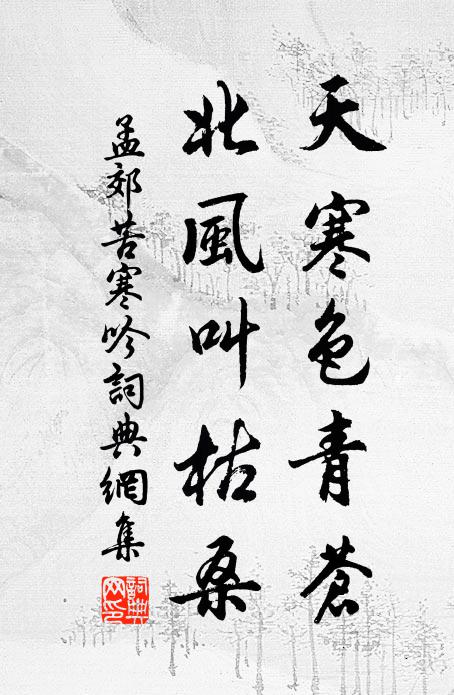 天寒色青蒼
北風叫枯桑
孟郊苦寒吟詞典網集
詞典網印